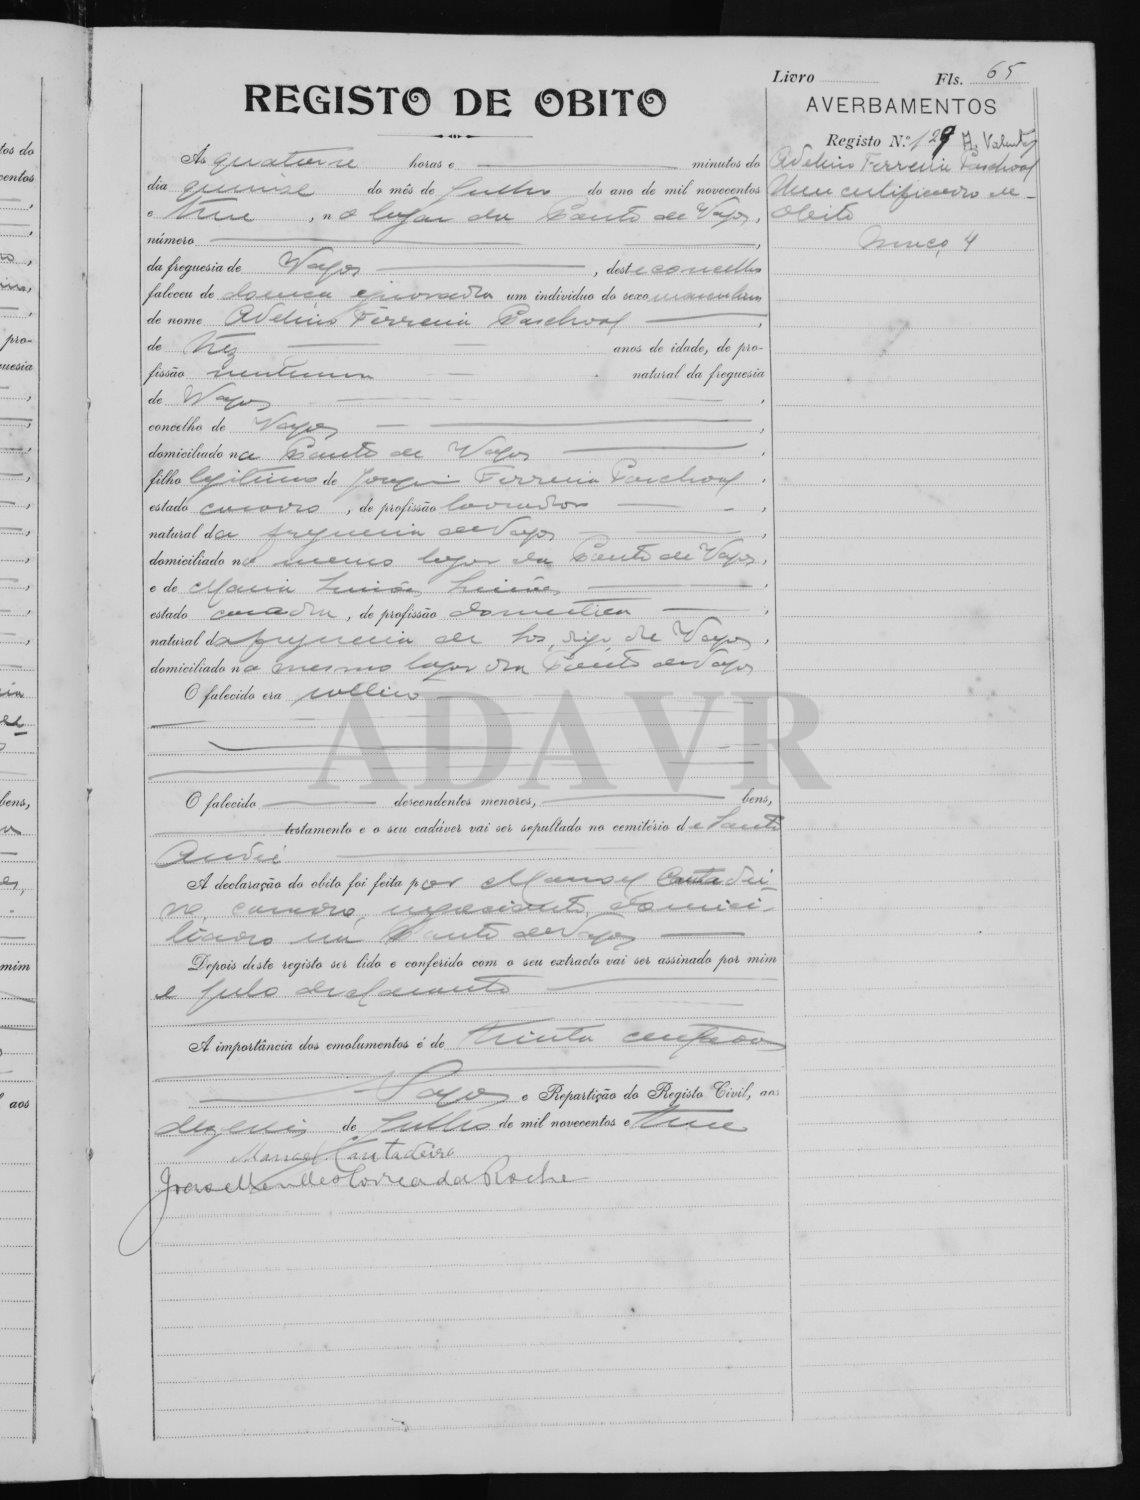 Livro Fls. 65
REGISTO DE OBITO
AVERBAMENTOS
Registo N.º 129
Ás quatorze horas e minutos do
Adelino Ferreira Paschoal
dia quinze do mês de Julho do ano de mil novecentos
e treze, no logar da de Vagos,
Obito
número
Maço 4
da freguesia de Vagos, deste concelho
faleceu de doença ignorada um individuo do sexo masculino
de nome Adelino Ferreira Paschoal
de trez anos de idade, de pro-
fissão nenhuma natural da freguesia
de Vagos,
concelho de Vagos,
domiciliado na de Vagos,
filho legitimo de Joaquim Ferreira Paschoal,
estado casado, de profissão lavrador,
natural da freguesia de Vagos,
domiciliado no mesmo logar da de Vagos,
e de Maria,
estado casada, de profissão domestica,
natural da freguesia de de Vagos,
domiciliado no mesmo logar da de Vagos
O falecido era solteiro
ADAVR
O falecido descendentes menores, bens,
testamento e o seu cadáver vai ser sepultado no cemitério de Santo
André
A declaração do obito foi feita por Manoel Cantadei-
ro, casado, negociante, domici-
liado na de Vagos
Depois deste registo ser lido e conferido com o seu extracto vai ser assinado por mim
e pelo declarante
A importância dos emolumentos é de trinta centavos
Vagos e Repartição do Registo Civil, aos
dezeseis de Julho de mil novecentos e treze
Manoel Cantadeiro
João Mendes Correa da Rocha